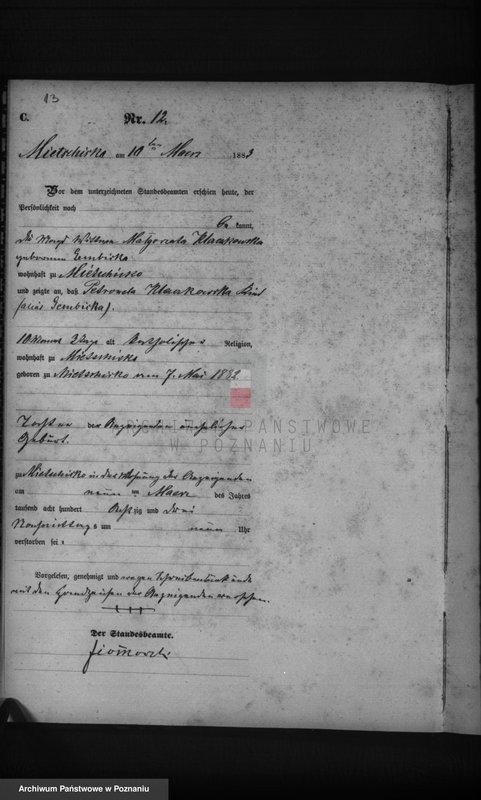 13
C.
Nr. 12.
Mietschisko am 10ten Maerz 1883
Vor dem unterzeichneten Standesbeamten erschien heute, der
Persönlichkeit nach
be kannt,
die Magd Wittwe Małgorzata Kłaczkowska
geborene Gembicka
wohnhaft zu Mietschisko
und zeigte an, daß Petronela Kłaczkowska Kind
(alias Gembicka).
10 Monat 2 Tage alt katholischer Religion,
wohnhaft zu Mietschisko
geboren zu Mietschisko am 7. Mai 1882
ARCHIWUM PAŃSTWOWE
W POZNANIU
Tochter der Anzeigenden
Geburt.
zu Mietschisko in der Wohnung der Anzeigenden
am neunten Maerz des Jahres
tausend acht hundert achtzig und drei
Nachmittags um neun Uhr
verstorben sei.
Vorgelesen, genehmigt und wegen Schreibensunkunde
mit den Handzeichen der Anzeigenden versehen.
+++
Der Standesbeamte.
Archiwum Państwowe w Poznaniu